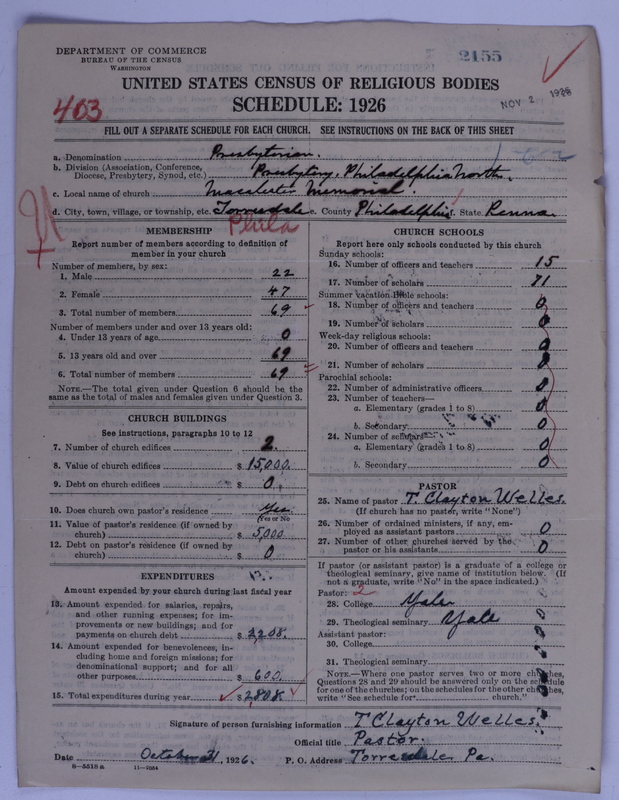 DEPARTMENT OF COMMERCE
BUREAU OF THE CENSUS
WASHINGTON
2155
UNITED STATES CENSUS OF RELIGIOUS BODIES
403
SCHEDULE: 1926
NOV 2 1926
FILL OUT A SEPARATE SCHEDULE FOR EACH CHURCH. SEE INSTRUCTIONS ON THE BACK OF THIS SHEET
a. Denomination Presbyterian.
b. Division (Association, Conference, Diocese, Presbytery, Synod, etc.) Presbytery, Philadelphia North.
c. Local name of church Macalester Memorial.
d. City, town, village, or township, etc. Torresdale e. County Philadelphia f. State Penna.
Phila
MEMBERSHIP
Report number of members according to definition of
member in your church
Number of members, by sex:
1. Male 22
2. Female 47
3. Total number of members 69
Number of members under and over 13 years old:
4. Under 13 years of age 0
5. 13 years old and over 69
6. Total number of members 69
NOTE.—The total given under Question 6 should be the
same as the total of males and females given under Question 3.
CHURCH BUILDINGS
See instructions, paragraphs 10 to 12
7. Number of church edifices 2.
8. Value of church edifices $ 15,000.
9. Debt on church edifices $ 0
10. Does church own pastor's residence Yes
(Yes or No
11. Value of pastor's residence (if owned by
church) $ 5,000
12. Debt on pastor's residence (if owned by
church) $ 0
EXPENDITURES
Amount expended by your church during last fiscal year
13. Amount expended for salaries, repairs,
and other running expenses; for im-
provements or new buildings; and for
payments on church debt $ 2,208.
14. Amount expended for benevolences, in-
cluding home and foreign missions; for
denominational support; and for all
other purposes $ 600.
15. Total expenditures during year $ 2,808
CHURCH SCHOOLS
Report here only schools conducted by this church
Sunday schools:
16. Number of officers and teachers 15
17. Number of scholars 71
Summer vacation Bible schools:
18. Number of officers and teachers 0
19. Number of scholars 0
Week-day religious schools:
20. Number of officers and teachers 0
21. Number of scholars 0
Parochial schools:
22. Number of administrative officers 0
23. Number of teachers—
a. Elementary (grades 1 to 8) 0
b. Secondary 0
24. Number of scholars—
a. Elementary (grades 1 to 8) 0
b. Secondary 0
PASTOR
25. Name of pastor T. Clayton Welles.
(If church has no pastor, write "None")
26. Number of ordained ministers, if any, em-
ployed as assistant pastors 0
27. Number of other churches served by the
pastor or his assistants 0
If pastor (or assistant pastor) is a graduate of a college or
theological seminary, give name of institution below. (If
not a graduate, write "No" in the space indicated.)
Pastor: 2
28. College Yale
29. Theological seminary Yale
Assistant pastor:
30. College
31. Theological seminary
NOTE.—Where one pastor serves two or more churches,
Questions 28 and 29 should be answered only on the schedule
for one of the churches; on the schedules for the other churches,
write "See schedule for church."
Signature of person furnishing information T Clayton Welles.
Official title Pastor.
Date October 21, 1926. P. O. Address Torresdale Pa.
8—5518a 11—9564